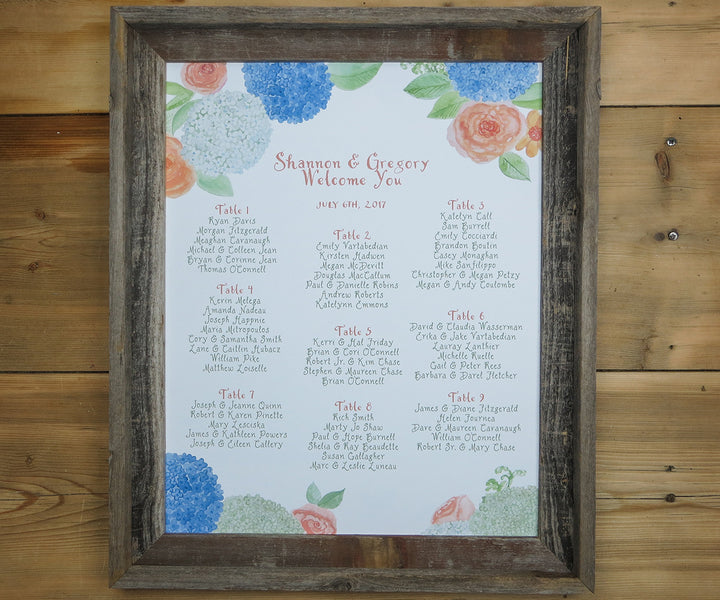 Shannon & Gregory
Welcome You
JULY 6TH, 2017
Table 1
Ryan Davis
Morgan Fitzgerald
Meaghan Cavanaugh
Michael & Colleen Jean
Bryan & Corinne Jean
Thomas O'Connell
Table 2
Emily Vartabedian
Kirsten Hadwen
Megan McDevitt
Douglas MacCallum
Paul & Danielle Robins
Andrew Roberts
Katelynn Emmons
Table 3
Katelyn Call
Sam Burrell
Emily Cocciardi
Brandon Boutin
Casey Monaghan
Mike Sanfilippo
Christopher & Megan Petzy
Megan & Andy Coulombe
Table 4
Kevin Melega
Amanda Nadeau
Joseph Happnie
Maria Mitropoulos
Cory & Samantha Smith
Lane & Caitlin Hubacz
William Pike
Matthew Loiselle
Table 5
Kerri & Hal Friday
Brian & Cori O'Connell
Robert Jr. & Kim Chase
Stephen & Maureen Chase
Brian O'Connell
Table 6
David & Claudia Wasserman
Erika & Jake Vartabedian
Lauray Lanthier
Michelle Ruelle
Gail & Peter Rees
Barbara & Darel Fletcher
Table 7
Joseph & Jeanne Quinn
Robert & Karen Pinette
Mary Lesciska
James & Kathleen Powers
Joseph & Eileen Callery
Table 8
Rich Smith
Marty Jo Shaw
Paul & Hope Burnell
Shelia & Ray Beaudette
Susan Gallagher
Marc & Leslie Luneau
Table 9
James & Diane Fitzgerald
Helen Journea
Dave & Maureen Cavanaugh
William O'Connell
Robert Sr. & Mary Chase